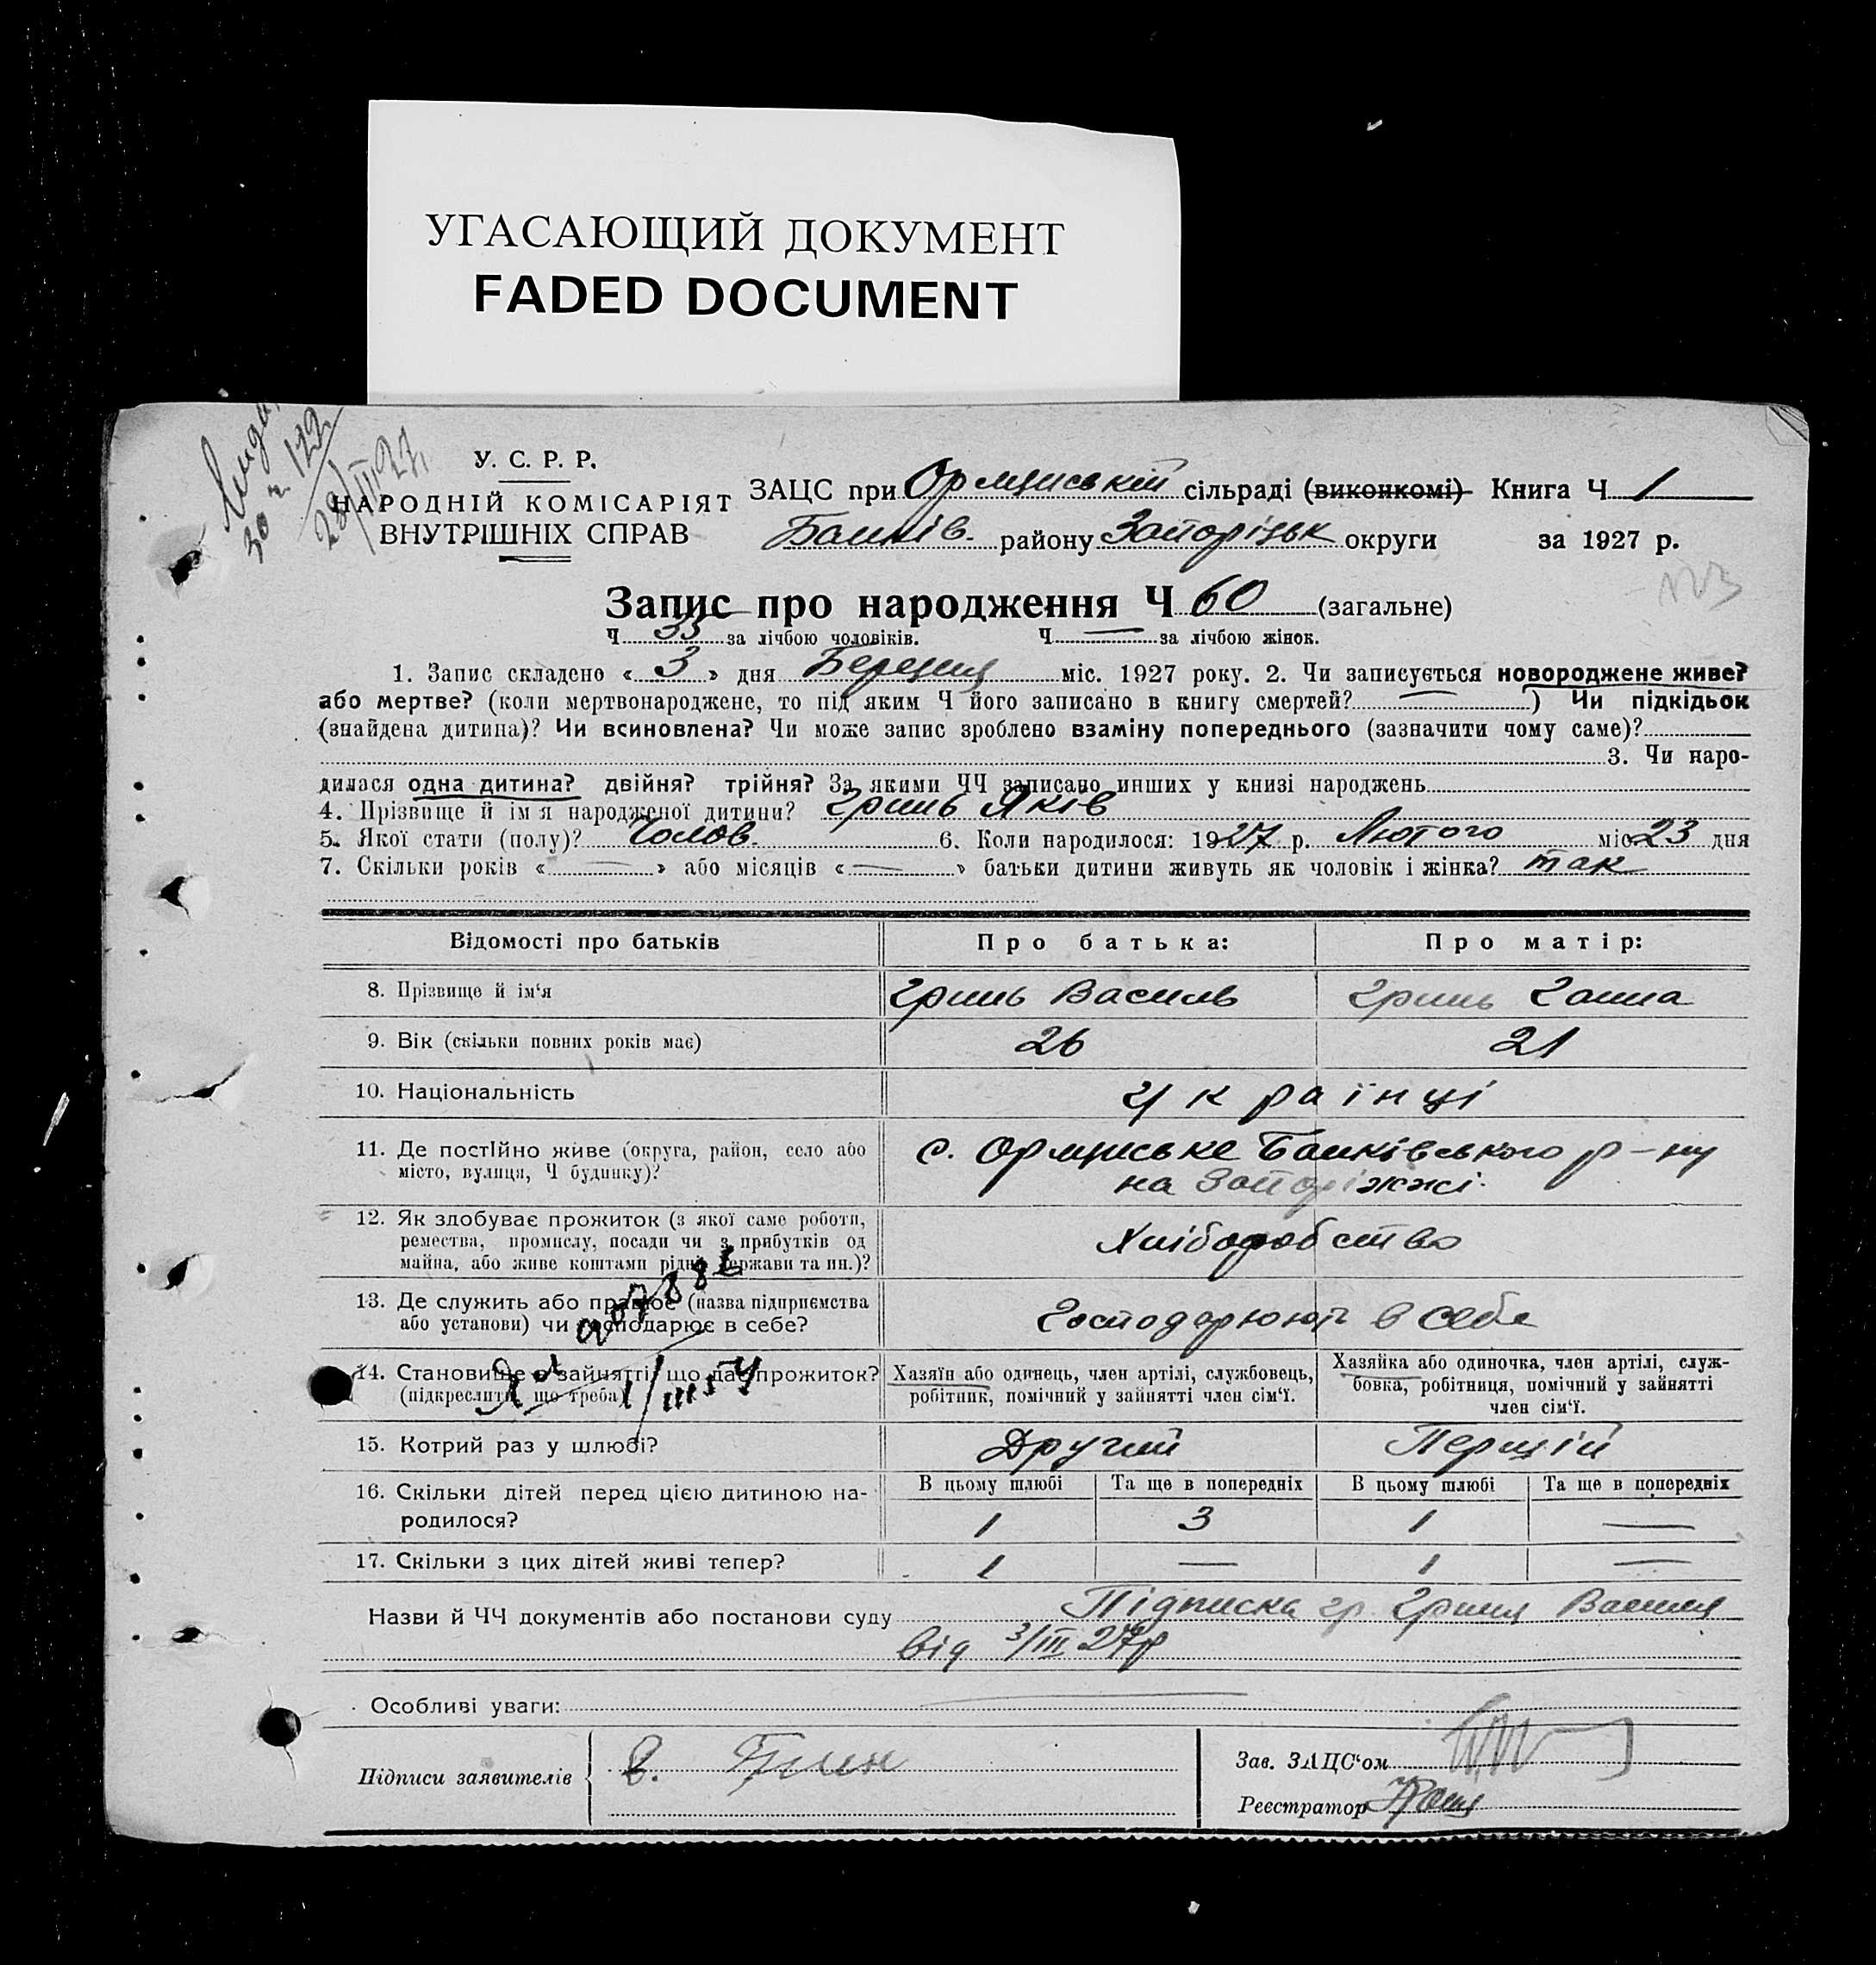 УГАСАЮЩИЙ ДОКУМЕНТ
FADED DOCUMENT
30 ч. 122
28/III 27.
У. С. Р. Р.
НАРОДНІЙ КОМІСАРІЯТ
ВНУТРІШНІХ СПРАВ
ЗАЦС при сільраді (виконкомі) Книга Ч 1
району Запорізьк округи за 1927 р.
Запис про народження Ч 60 (загальне)
Ч 35 за лічбою чоловіків. Ч — за лічбою жінок.
1. Запис складено « 3 » дня Березня міс. 1927 року. 2. Чи записується новороджене живе?
або мертве? (коли мертвонароджене, то під яким Ч його записано в книгу смертей? — ) Чи підкідьок
(знайдена дитина)? Чи всиновлена? Чи може запис зроблено взаміну попереднього (зазначити чому саме)?
3. Чи наро-
дилася одна дитина? двійня? трійня? За якими ЧЧ записано инших у книзі народжень
4. Прізвище й ім'я народженої дитини? Гришь Яків
5. Якої стати (полу)? Чолов. 6. Коли народилося: 1927 р. Лютого міс 23 дня
7. Скільки років « — » або місяців « — » батьки дитини живуть як чоловік і жінка? так
Відомості про батьків Про батька: Про матір:
8. Прізвище й ім'я Гришь Василь Гришь Ганна
9. Вік (скільки повних років має) 26 21
10. Національність Українці
11. Де постійно живе (округа, район, село або
місто, вулиця, Ч будинку)?
с. р-ну
на Запоріжжі.
12. Як здобуває прожиток (з якої саме роботи,
ремества, промислу, посади чи з прибутків од
майна, або живе коштами рідні, держави та ин.)?
Хліборобство
13. Де служить або працює (назва підприємства
або установи) чи господарює в себе?
Господарюють в себе
14. Становище в зайнятті, що дає прожиток?
(підкреслити, що треба)
Хазяїн або одинець, член артілі, службовець,
робітник, помічний у зайнятті член сім'ї.
Хазяйка або одиночка, член артілі, служ-
бовка, робітниця, помічний у зайнятті
член сім'ї.
15. Котрий раз у шлюбі? Другий Перший
16. Скільки дітей перед цією дитиною на-
родилося?
В цьому шлюбі Та ще в попередніх В цьому шлюбі Та ще в попередніх
1 3 1 —
17. Скільки з цих дітей живі тепер? 1 — 1 —
Назви й ЧЧ документів або постанови суду Підписка гр. Гришя Василя
від 3/III 27р
Особливі уваги:
Підписи заявителів В.
Зав. ЗАЦС'ом
Реєстратор